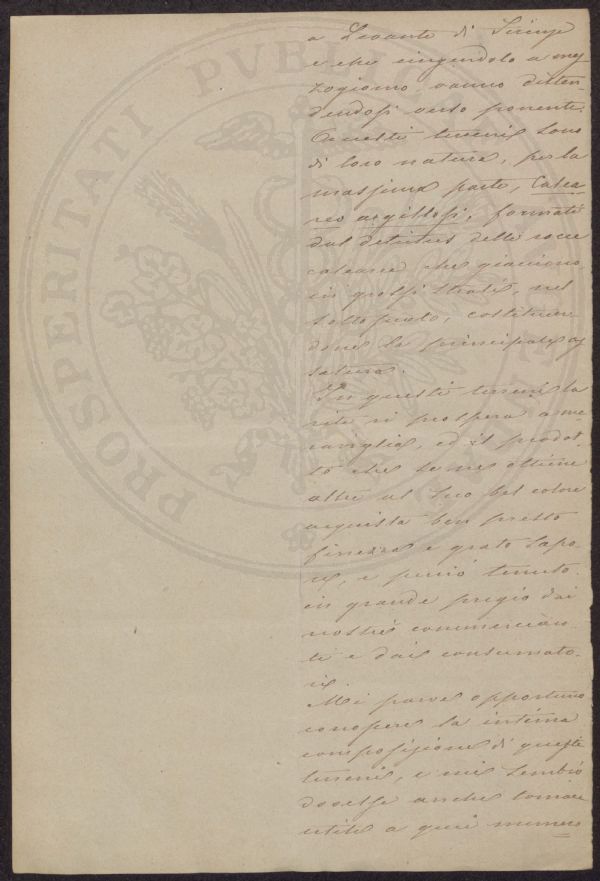 a Levante di Firenze
e che cingendolo a mez
zogiorno vanno disten-
dendosi verso ponente.
Questi terreni sono
di loro natura, per la
massima parte, Calca
reo argillosi, formati
dal detritus delle rocce
calcaree che giacciono
in grossi strati, nel
sottosuolo, costituen-
done la principale os
satura.
In questi terreni la
vite vi prospera a me
raviglia, ed il prodot-
to che se ne ottiene
oltre al suo bel colore
acquista ben presto
finezza e grato sapo-
re, e perciò tenuto
in grande pregio dai
nostri commercian-
ti e dai consumato-
ri.
Mi parve opportuno
conoscere la intima
composizione di questi
terreni, e mi sembrò
dovesse anche tornare
utile a quei numero
PROSPERITATI PVBLICAE